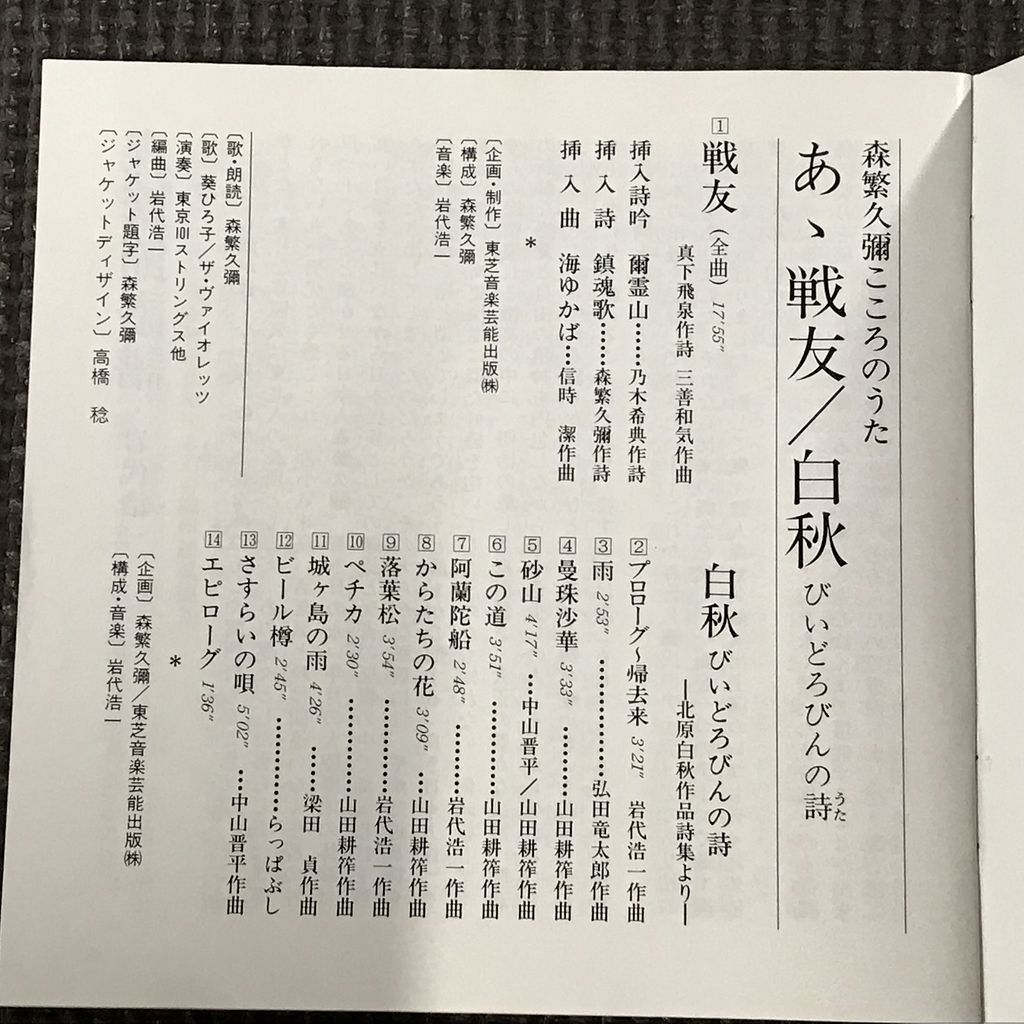 森繁久彌こころのうた
あゝ戦友／白秋 びいどろびんの詩
うた
1 戦友（全曲） 17'55"
真下飛泉作詩 三善和気作曲
挿入詩吟 爾霊山……乃木希典作詩
挿入詩 鎮魂歌……森繁久彌作詩
挿入曲 海ゆかば…信時 潔作曲
＊
〔企画・制作〕東芝音楽芸能出版㈱
〔構成〕森繁久彌
〔音楽〕岩代浩一
〔歌・朗読〕森繁久彌
〔歌〕葵ひろ子／ザ・ヴァイオレッツ
〔演奏〕東京101ストリングス他
〔編曲〕岩代浩一
〔ジャケット題字〕森繁久彌
〔ジャケットディザイン〕高橋 稔
白秋 びいどろびんの詩
―北原白秋作品詩集より―
2 プロローグ～帰去来 3'21" 岩代浩一作曲
3 雨 2'53" …………弘田竜太郎作曲
4 曼珠沙華 3'33" ………山田耕筰作曲
5 砂山 4'17" …中山晋平／山田耕筰作曲
6 この道 3'51" …………山田耕筰作曲
7 阿蘭陀船 2'48" ………岩代浩一作曲
8 からたちの花 3'09" …山田耕筰作曲
9 落葉松 3'54" …………岩代浩一作曲
10 ペチカ 2'30" …………山田耕筰作曲
11 城ヶ島の雨 4'26" ……梁田 貞作曲
12 ビール樽 2'45" …………らっぱぶし
13 さすらいの唄 5'02" …中山晋平作曲
14 エピローグ 1'36"
＊
〔企画〕森繁久彌／東芝音楽芸能出版㈱
〔構成・音楽〕岩代浩一